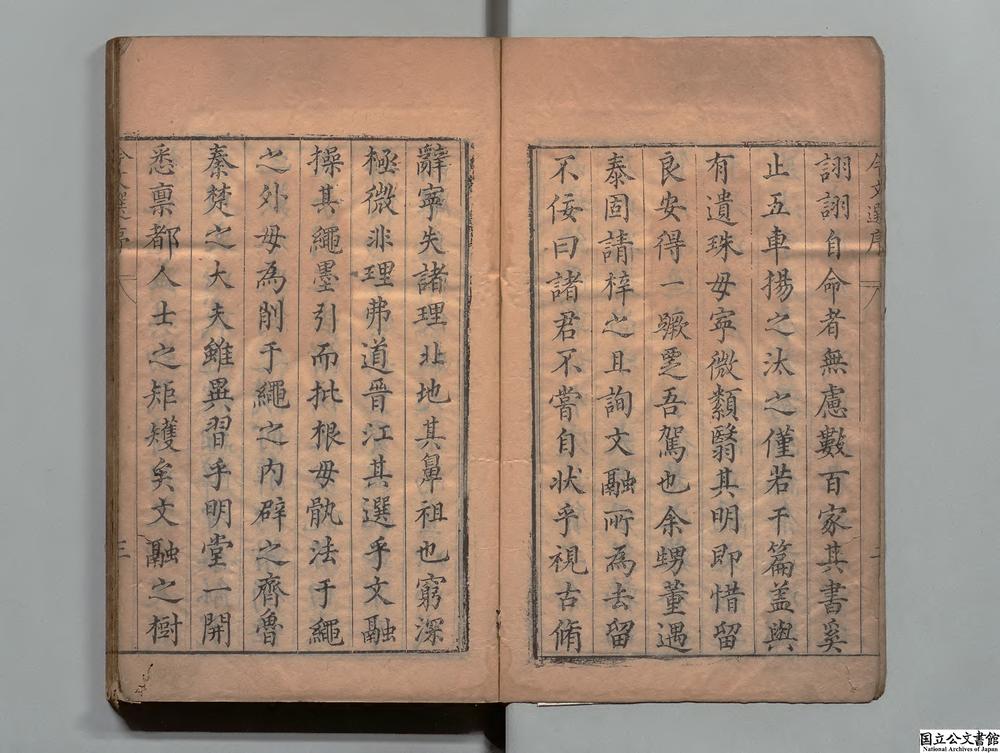 今文選序
詡詡自命者無慮數百家其書奚
止五車揚之汰之僅若干篇盖與
有遺珠毋寕微纇翳其明即惜留
良安得一蹶覂吾駕也余甥董遇
泰固請梓之且詢文融所為去留
不佞曰諸君不嘗自状乎視古脩
辭寕失諸理北地其鼻祖也窮深
極微非理弗道晉江其選乎文融
操其繩墨引而批根毋骫法于繩
之外毋為削于繩之内辟之齊魯
秦楚之大夫雖異習乎明堂一開
悉禀都人士之矩矱矣文融之樹
三
国立公文書館
National Archives of Japan